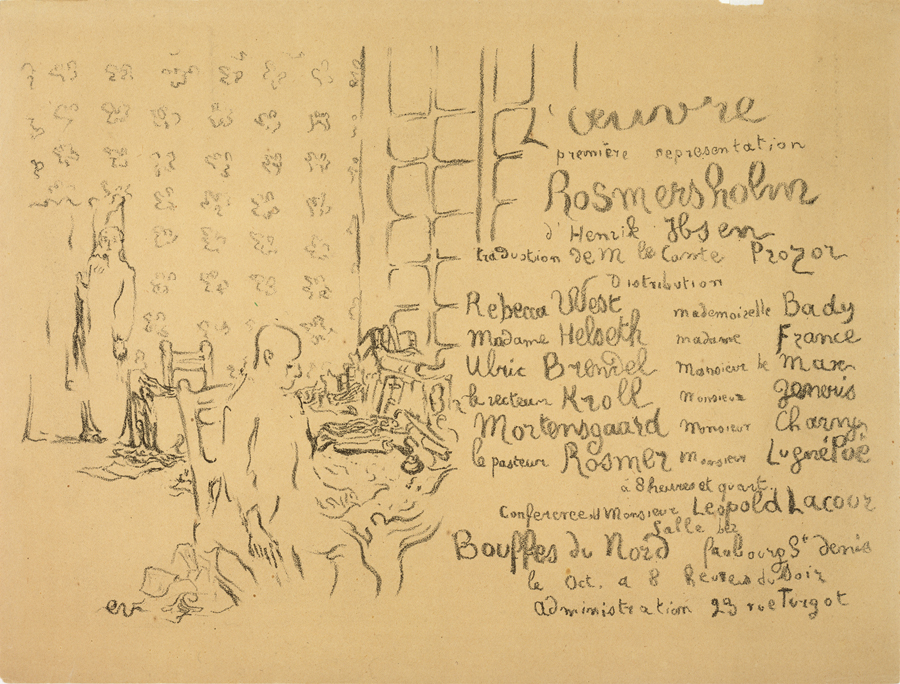 L'œuvre
première representation
Rosmersholm
d'Henrik Ibsen
traduction de M le Comte Prozor
Distribution
Rebecca West mademoizelle Bady
Madame Helseth madame France
Ulric Brendel Monsieur de Max
le recteur Kroll Monsieur
Mortensgaard Monsieur Charny
le pasteur Rosmer Monsieur LugnéPoë
à 8 heures et quart.
Conference Monsieur Leopold Lacour
Salle des
Bouffes du Nord faubourg St denis
le Oct. a 8 heures du Soir
administration 23 rue Turgot
ev